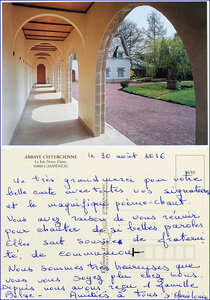 ABBAYE CISTERCIENNE
La Joie Notre-Dame
56800 CAMPENEAC
le 30 août 2016
Un très grand merci pour votre
belle carte avec toutes vos signatures
et le magnifique poème-chant.
Vous avez raison de vous réunir
pour chanter de si belles paroles
elles sont source de fraternité
té, de communion
Nous sommes très heureuses que
vous vous soyez plu chez nous
Depuis nous avons reçu 1 famille
Belge - Amitiés à tous